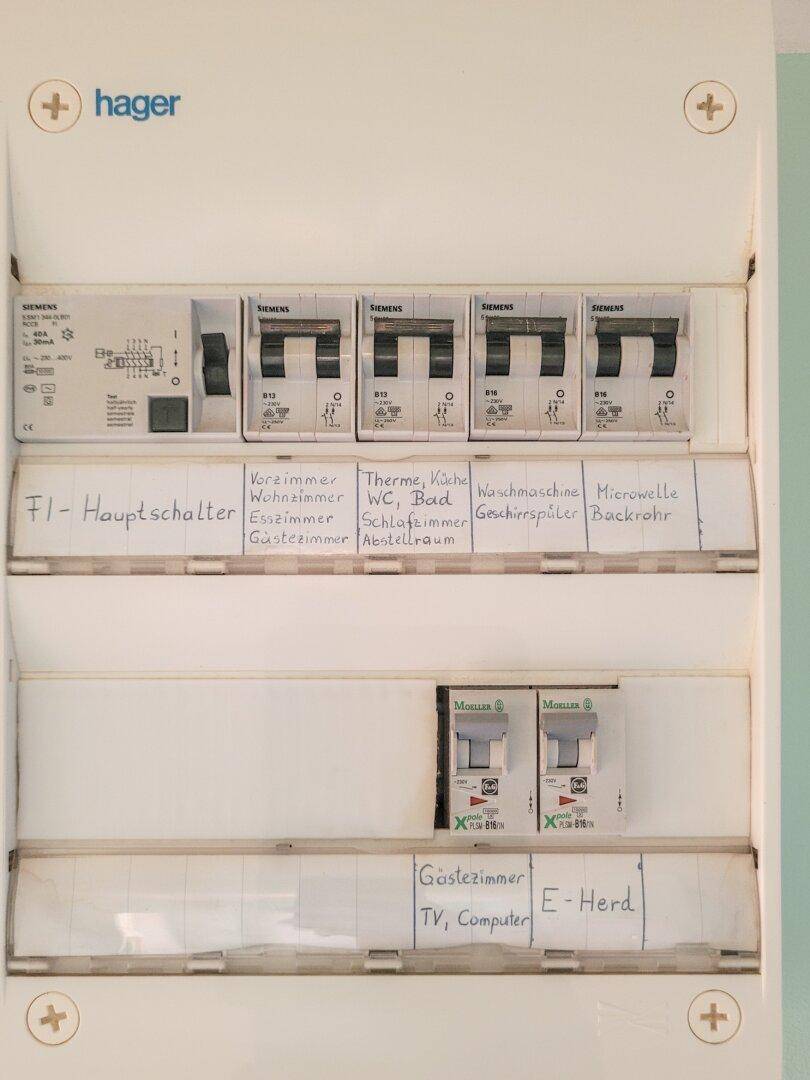 hager
SIEMENS
5SM1 344-0LB01
RCCB
40A
30mA
Test
halbjährlich
half-yearly
semestrale
semestral
semestriel
SIEMENS
B13
~230V
SIEMENS
B13
~230V
SIEMENS
B16
~230V
SIEMENS
B16
~230V
FI-Hauptschalter
Vorzimmer
Wohnzimmer
Esszimmer
Gästezimmer
Therme, Küche
WC, Bad
Schlafzimmer
Abstellraum
Waschmaschine
Geschirrspüler
Microwelle
Backrohr
MOELLER
~230V
F&G
10000
Xpole
PLSM-B16/1N
MOELLER
~230V
F&G
10000
Xpole
PLSM-B16/1N
Gästezimmer
TV, Computer
E-Herd